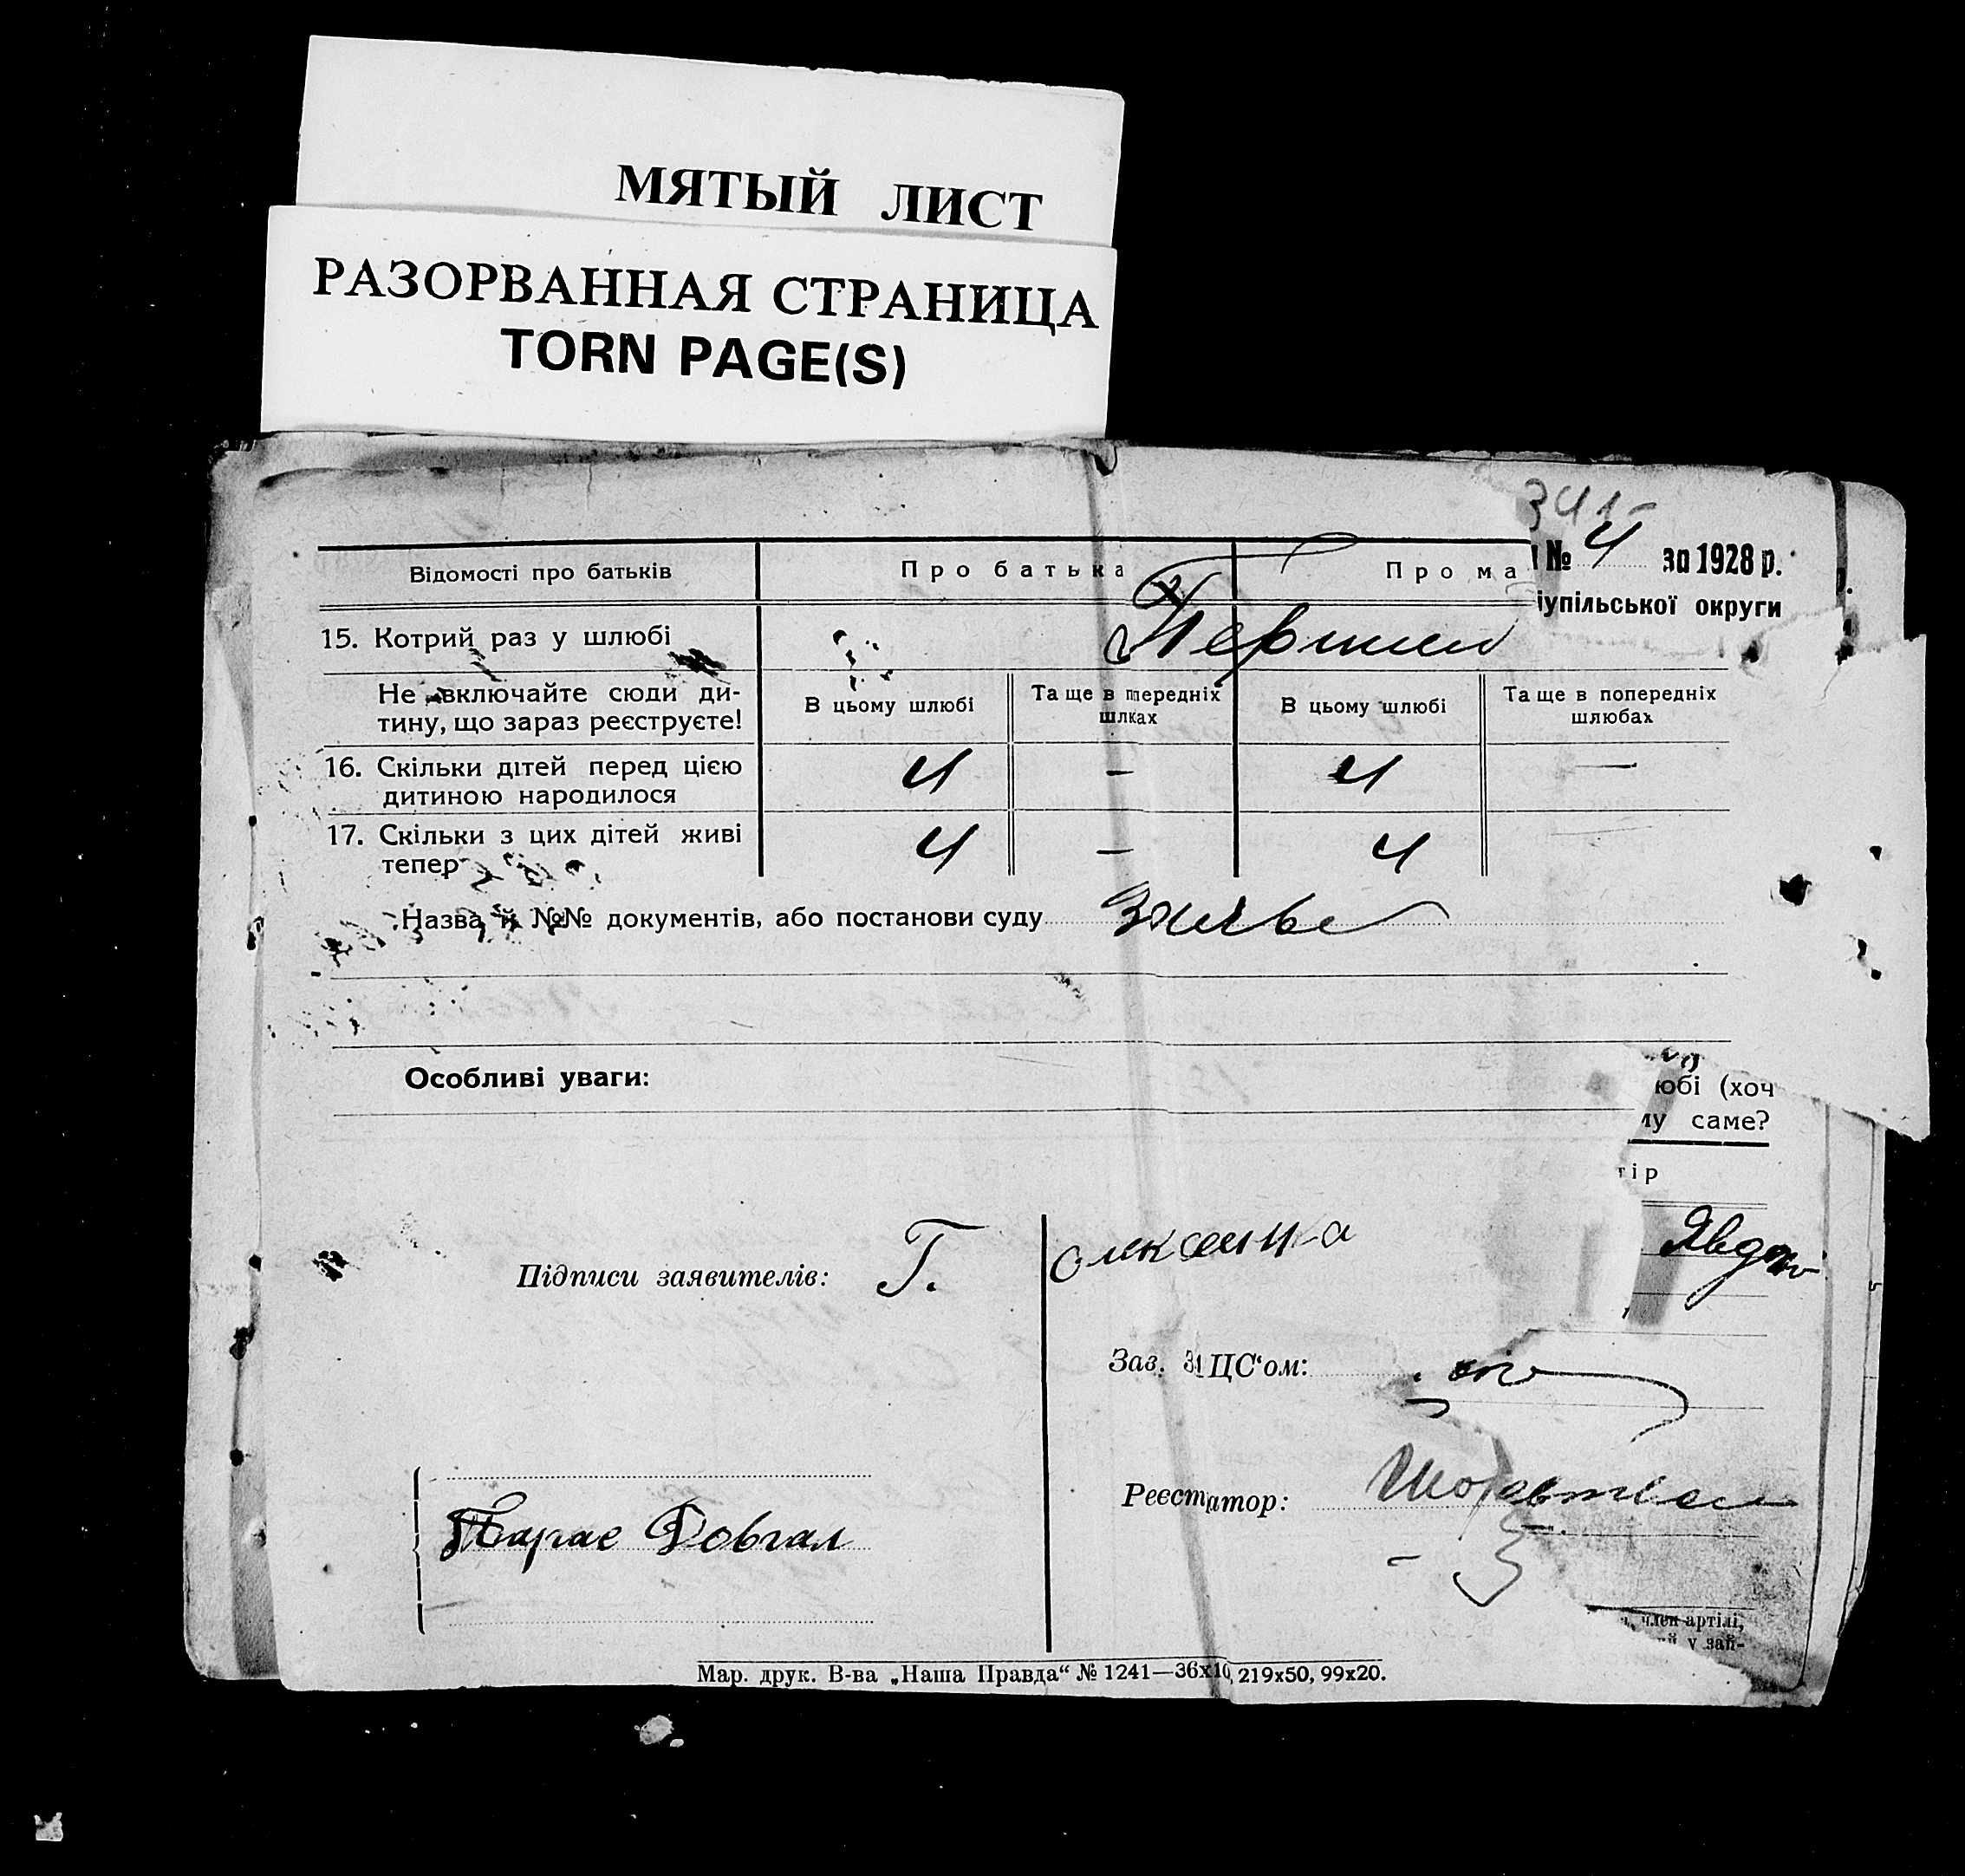 МЯТЫЙ ЛИСТ
РАЗОРВАННАЯ СТРАНИЦА
TORN PAGE(S)
341-
№ 4 за 1928 р.
іупільської округи
Відомості про батьків Про батька Про ма
15. Котрий раз у шлюбі
Не включайте сюди ди-
тину, що зараз реєструєте!
В цьому шлюбі Та ще в передніх шлках В цьому шлюбі Та ще в попередніх шлюбах
16. Скільки дітей перед цією 4 — 4 —
дитиною народилося
17. Скільки з цих дітей живі 4 — 4
тепер
Назва й №№ документів, або постанови суду
Особливі уваги:
юбі (хоч
му саме?
тір
Явдо
Підписи заявителів: Г.
Зав. ЗАЦС'ом:
Реєстратор:
Тарас Довгал
член артілі,
у зай-
Мар. друк. В-ва „Наша Правда“ № 1241—36х10, 219х50, 99х20.